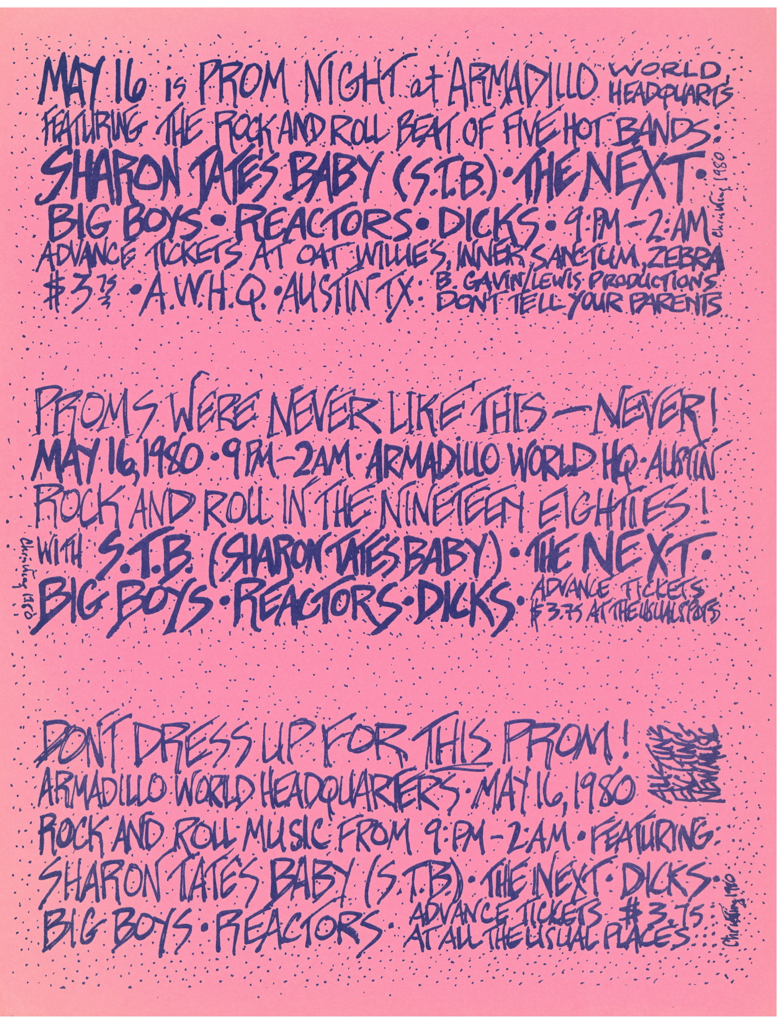 MAY 16 is PROM NIGHT at ARMADILLO WORLD HEADQUARTS
FEATURING THE ROCK AND ROLL BEAT OF FIVE HOT BANDS:
SHARON TATE'S BABY (S.T.B.) • THE NEXT •
BIG BOYS • REACTORS • DICKS • 9:PM – 2:AM
ADVANCE TICKETS AT OAT WILLIE'S, INNER SANCTUM, ZEBRA
$3.75 • A.W.H.Q. • AUSTIN TX. B. GAVIN/LEWIS PRODUCTIONS
DON'T TELL YOUR PARENTS
1980
PROMS WERE NEVER LIKE THIS — NEVER!
MAY 16, 1980 • 9PM – 2AM • ARMADILLO WORLD HQ • AUSTIN
ROCK AND ROLL IN THE NINETEEN EIGHTIES!
WITH S.T.B. (SHARON TATE'S BABY) • THE NEXT •
BIG BOYS • REACTORS • DICKS • ADVANCE TICKETS
$3.75 AT THE USUAL SPOTS
1980
DON'T DRESS UP FOR THIS PROM!
AUSTIN'S
EXCITING
NEW MUSIC
ARMADILLO WORLD HEADQUARTERS • MAY 16, 1980
ROCK AND ROLL MUSIC FROM 9:PM – 2:AM • FEATURING:
SHARON TATE'S BABY (S.T.B.) • THE NEXT • DICKS •
BIG BOYS • REACTORS • ADVANCE TICKETS $3.75
AT ALL THE USUAL PLACES
1980